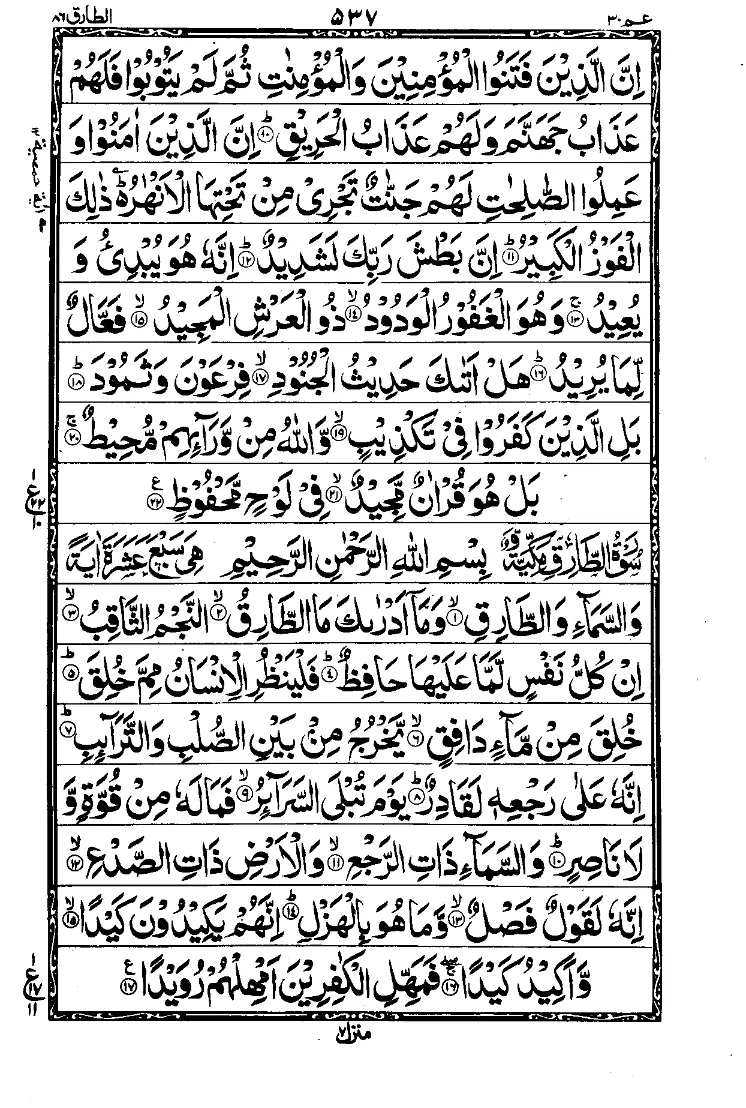 عم ٣٠
٥٣٧
الطارق ٨٦
اِنَّ الَّذِيْنَ فَتَنُوا الْمُؤْمِنِيْنَ وَالْمُؤْمِنٰتِ ثُمَّ لَمْ يَتُوْبُوْا فَلَهُمْ
عَذَابُ جَهَنَّمَ وَلَهُمْ عَذَابُ الْحَرِيْقِ ؕ‏﴿۱۰﴾ اِنَّ الَّذِيْنَ اٰمَنُوْا وَ
عَمِلُوا الصّٰلِحٰتِ لَهُمْ جَنّٰتٌ تَجْرِىْ مِنْ تَحْتِهَا الْاَنْهٰرُ ؕ ذٰلِكَ
الْفَوْزُ الْكَبِيْرُ ؕ‏﴿۱۱﴾ اِنَّ بَطْشَ رَبِّكَ لَشَدِيْدٌ ؕ‏﴿۱۲﴾ اِنَّهٗ هُوَ يُبْدِئُ وَ
يُعِيْدُ ۚ‏﴿۱۳﴾ وَهُوَ الْغَفُوْرُ الْوَدُوْدُ ۙ‏﴿۱۴﴾ ذُو الْعَرْشِ الْمَجِيْدُ ۙ‏﴿۱۵﴾ فَعَّالٌ
لِّمَا يُرِيْدُ ؕ‏﴿۱۶﴾ هَلْ اَتٰىكَ حَدِيْثُ الْجُنُوْدِ ۙ‏﴿۱۷﴾ فِرْعَوْنَ وَثَمُوْدَ ؕ‏﴿۱۸﴾
بَلِ الَّذِيْنَ كَفَرُوْا فِىْ تَكْذِيْبٍ ۙ‏﴿۱۹﴾ وَّاللّٰهُ مِنْ وَّرَآئِهِمْ مُّحِيْطٌ ۚ‏﴿۲۰﴾
بَلْ هُوَ قُرْاٰنٌ مَّجِيْدٌ ۙ‏﴿۲۱﴾ فِىْ لَوْحٍ مَّحْفُوْظٍ ‏﴿۲۲﴾
سُوْرَةُ الطَّارِقِ مَكِّيَّةٌ وَّ بِسْمِ اللّٰهِ الرَّحْمٰنِ الرَّحِيْمِ هِىَ سَبْعَ عَشْرَةَ اٰيَةً
وَالسَّمَآءِ وَالطَّارِقِ ۙ‏﴿۱﴾ وَمَاۤ اَدْرٰىكَ مَا الطَّارِقُ ۙ‏﴿۲﴾ النَّجْمُ الثَّاقِبُ ۙ‏﴿۳﴾
اِنْ كُلُّ نَفْسٍ لَّمَّا عَلَيْهَا حَافِظٌ ؕ‏﴿۴﴾ فَلْيَنْظُرِ الْاِنْسَانُ مِمَّ خُلِقَ ؕ‏﴿۵﴾
خُلِقَ مِنْ مَّآءٍ دَافِقٍ ۙ‏﴿۶﴾ يَّخْرُجُ مِنْۢ بَيْنِ الصُّلْبِ وَالتَّرَآئِبِ ؕ‏﴿۷﴾
اِنَّهٗ عَلٰى رَجْعِهٖ لَقَادِرٌ ؕ‏﴿۸﴾ يَوْمَ تُبْلَى السَّرَآئِرُ ۙ‏﴿۹﴾ فَمَا لَهٗ مِنْ قُوَّةٍ وَّ
لَا نَاصِرٍ ؕ‏﴿۱۰﴾ وَالسَّمَآءِ ذَاتِ الرَّجْعِ ۙ‏﴿۱۱﴾ وَالْاَرْضِ ذَاتِ الصَّدْعِ ۙ‏﴿۱۲﴾
اِنَّهٗ لَقَوْلٌ فَصْلٌ ۙ‏﴿۱۳﴾ وَّمَا هُوَ بِالْهَزْلِ ؕ‏﴿۱۴﴾ اِنَّهُمْ يَكِيْدُوْنَ كَيْدًا ۙ‏﴿۱۵﴾
وَّاَكِيْدُ كَيْدًا ۚۖ‏﴿۱۶﴾ فَمَهِّلِ الْكٰفِرِيْنَ اَمْهِلْهُمْ رُوَيْدًا ‏﴿۱۷﴾
منزل ٧